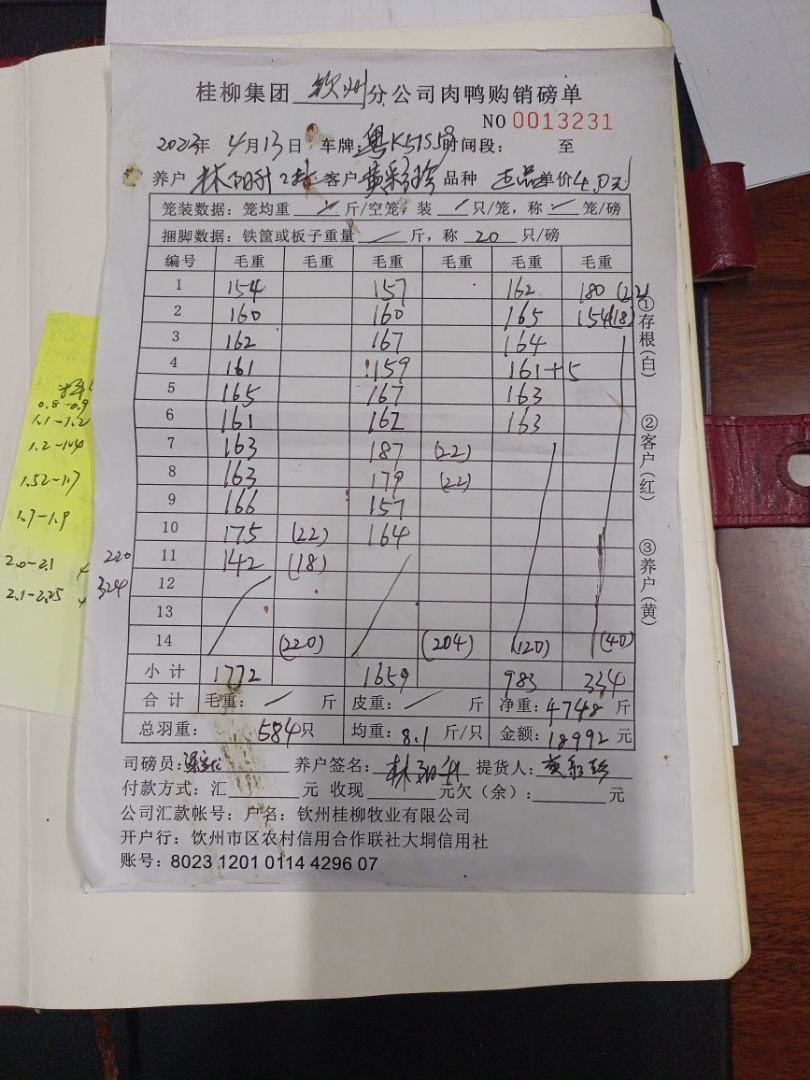 桂柳集团 钦州 分公司肉鸭购销磅单
NO 0013231
2023年 4月13日 车牌:粤K5155 时间段: 至
养户 林 客户 黄彩珍 品种 正品 单价4.0元
笼装数据:笼均重 / 斤/空笼,装 / 只/笼,称 / 笼/磅
捆脚数据:铁筐或板子重量 / 斤,称 20 只/磅
编号 毛重 毛重 毛重 毛重 毛重 毛重
1 154 157 162 180 (22)
2 160 160 165 154(18)
3 162 167 164
4 161 159 161+5
5 165 167 163
6 161 162 163
7 163 187 (22)
8 163 179 (22)
9 166 157
10 175 (22) 164
11 142 (18)
12
13
14 (220) (204) (120) (40)
小计 1772 1659 983 334
合计 毛重: / 斤 皮重: / 斤 净重:4748 斤
总羽重: 584只 均重:8.1 斤/只 金额:18992 元
司磅员: 养户签名: 林 提货人:黄彩珍
付款方式:汇 元 收现 元欠(余): 元
公司汇款帐号:户名:钦州桂柳牧业有限公司
开户行:钦州市区农村信用合作联社大垌信用社
账号:8023 1201 0114 4296 07
①存根(白)
②客户(红)
③养户(黄)
0.8-0.9
1.1-1.2
1.2-1.4
1.52-1.7
1.7-1.9
2.0-2.1 220
2.1-2.25 324